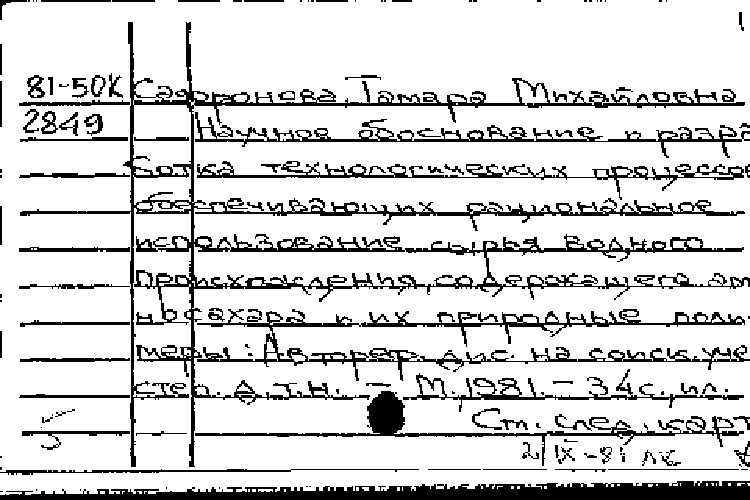 81-50К Сафронова, Тамара Михайловна
2849 Научное обоснование и разра
ботка технологических процессов
обеспечивающих рациональное
использование сырья водного
происхождения, содержащего ами
носахара и их природные поли-
меры: Автореф. дис. на соиск. уче
степ. д.т.н. - М., 1981. - 34с., ил.
Ст. след. карт
2/IX-81 лк